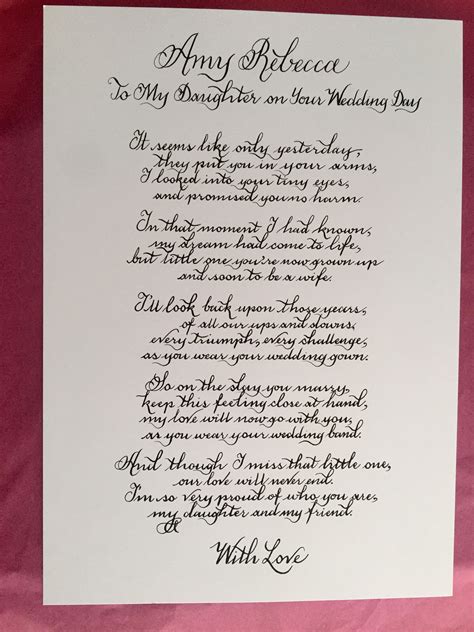 Amy Rebecca
To My Daughter on Your Wedding Day
It seems like only yesterday,
they put you in your arms,
I looked into your tiny eyes,
and promised you no harm.
In that moment I had known,
my dream had come to life,
but little one you're now grown up
and soon to be a wife.
I'll look back upon those years,
of all our ups and downs,
every triumph, every challenge,
as you wear your wedding gown.
So on the day you marry,
keep this feeling close at hand,
my love will now go with you,
as you wear your wedding band.
And though I miss that little one,
our love will never end.
I'm so very proud of who you are,
my daughter and my friend.
With Love